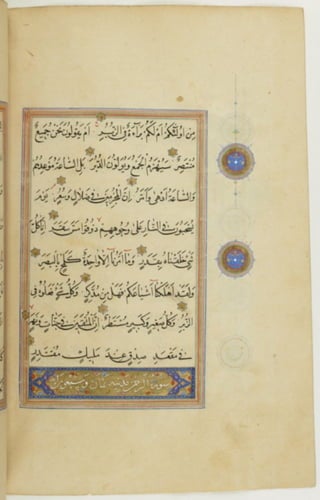 مِن اُولٰئِكُمْ اَمْ لَكُمْ بَرَآءَةٌ فِي الزُّبُرِ اَمْ يَقُولُونَ نَحْنُ جَمِيعٌ
مُنْتَصِرٌ سَيُهْزَمُ الْجَمْعُ وَيُوَلُّونَ الدُّبُرَ بَلِ السَّاعَةُ مَوْعِدُهُمْ
وَالسَّاعَةُ اَدْهٰى وَاَمَرُّ اِنَّ الْمُجْرِمِينَ فِي ضَلَالٍ وَسُعُرٍ يَوْمَ
يُسْحَبُونَ فِي النَّارِ عَلٰى وُجُوهِهِمْ ذُوقُوا مَسَّ سَقَرَ اِنَّا كُلَّ
شَيْءٍ خَلَقْنَاهُ بِقَدَرٍ وَمَا اَمْرُنَا اِلَّا وَاحِدَةٌ كَلَمْحٍ بِالْبَصَرِ
وَلَقَدْ اَهْلَكْنَا اَشْيَاعَكُمْ فَهَلْ مِنْ مُدَّكِرٍ وَكُلُّ شَيْءٍ فَعَلُوهُ فِي
الزُّبُرِ وَكُلُّ صَغِيرٍ وَكَبِيرٍ مُسْتَطَرٌ اِنَّ الْمُتَّقِينَ فِي جَنَّاتٍ وَنَهَرٍ
فِي مَقْعَدِ صِدْقٍ عِنْدَ مَلِيكٍ مُقْتَدِرٍ
سورة الرحمن